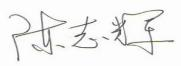 陈志辉